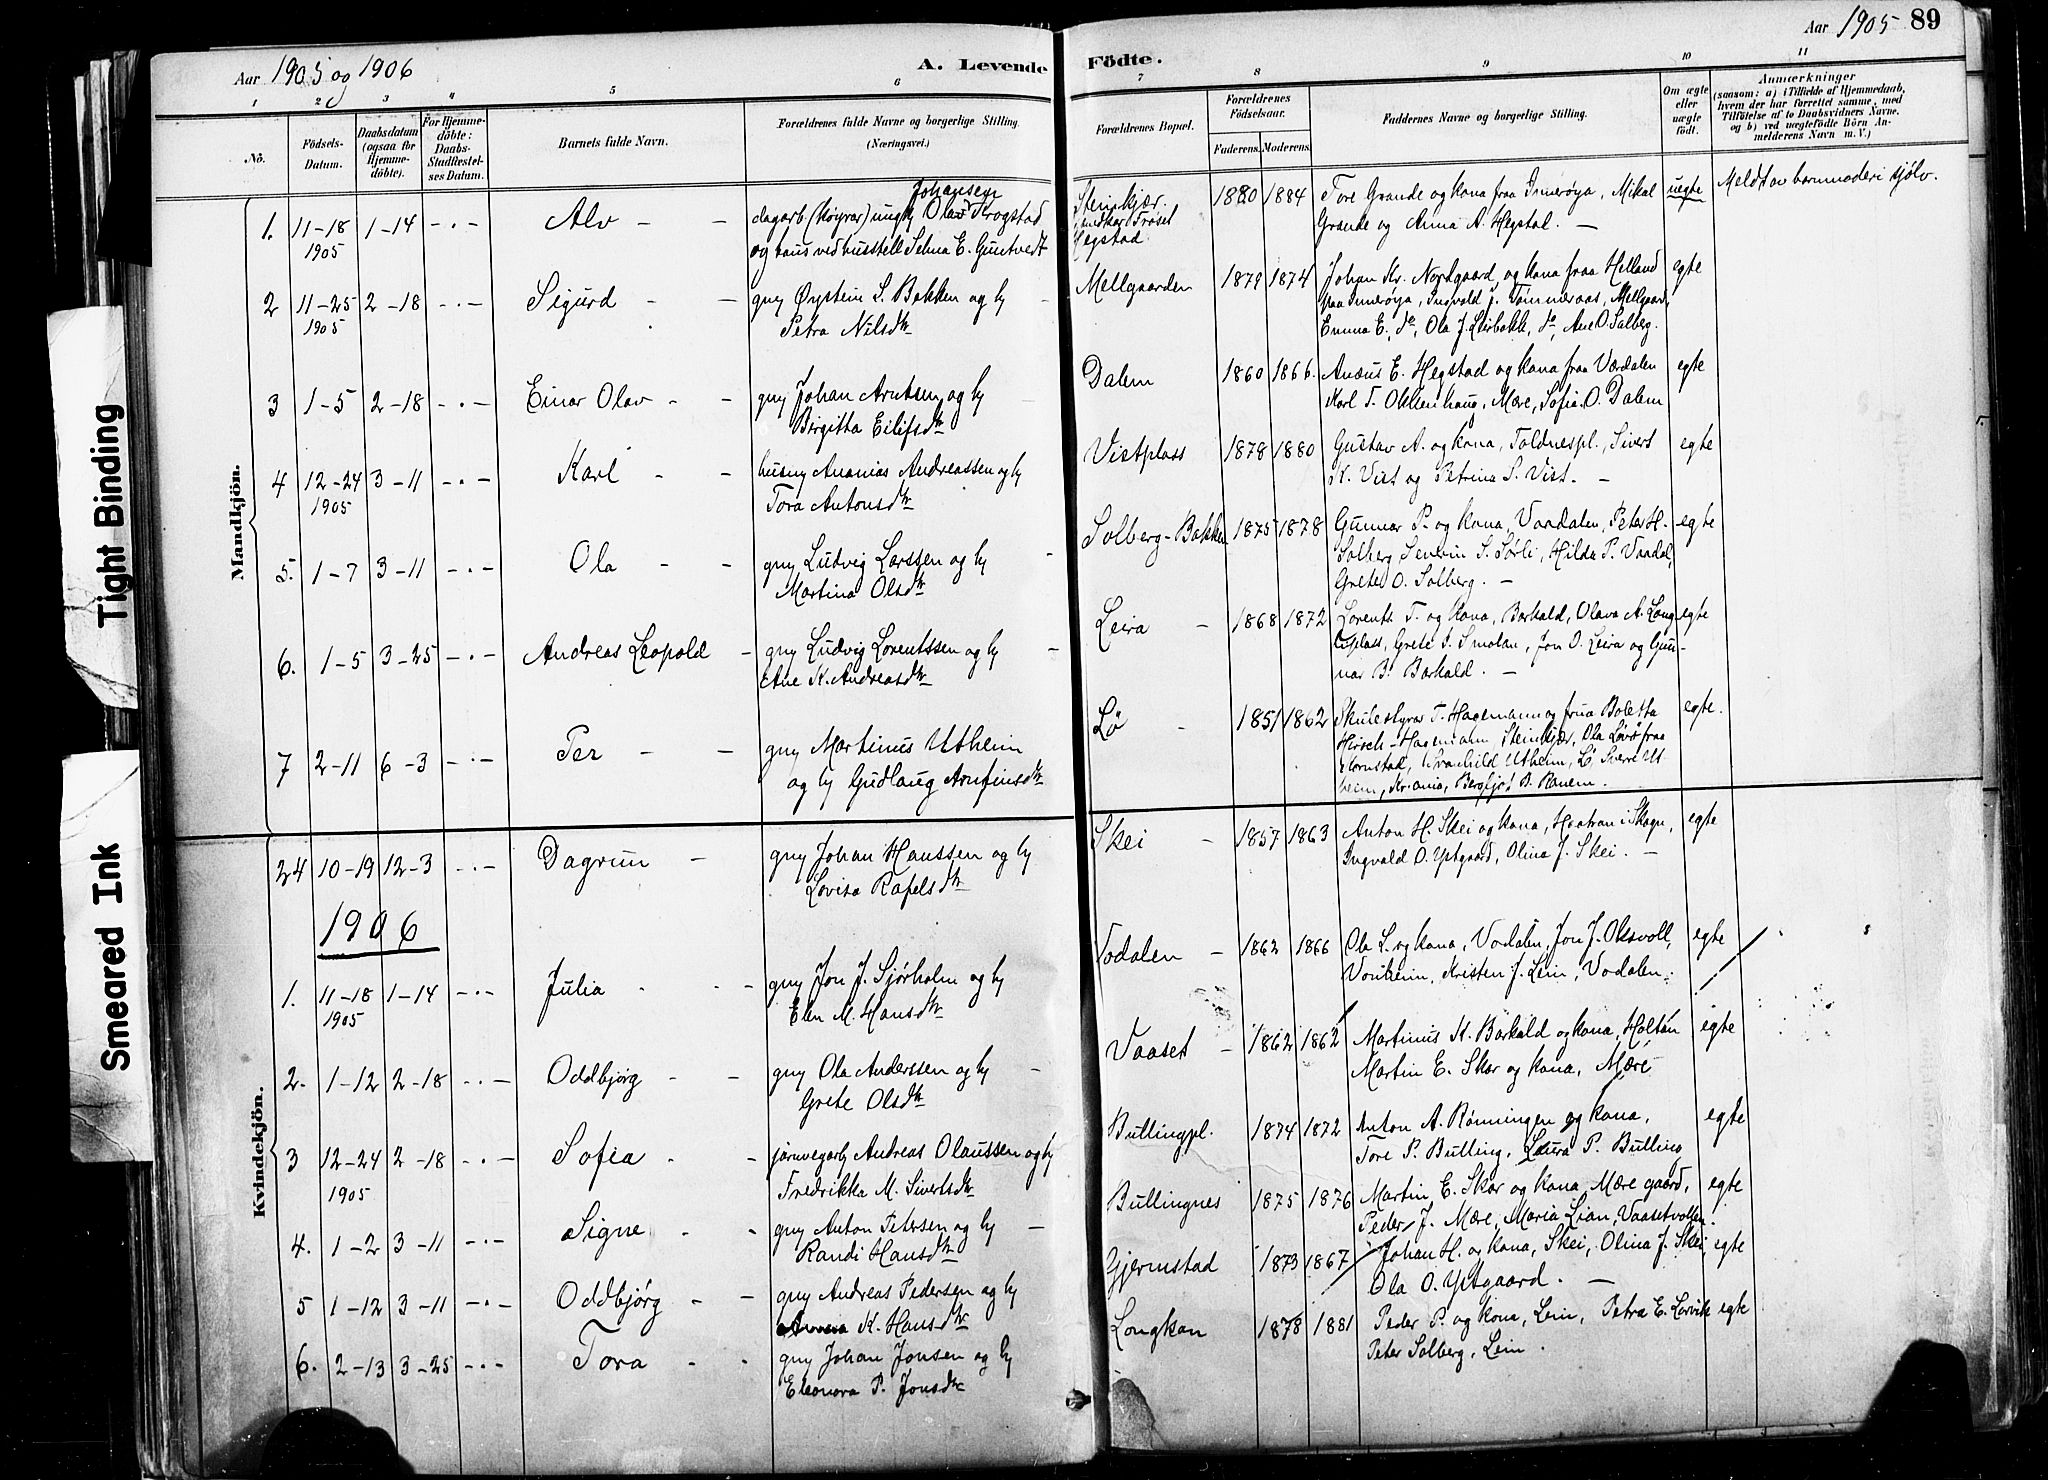 Aar 1905 og 1906
A. Levende
Födte.
Aar 1905
89
1 2 3 4 5 6 7 8 9 10 11
No.
Födsels-
Datum.
Daabsdatum
(ogsaa for
Hjemme-
döbte).
For Hjemme-
döbte:
Daabs-
Stadfæstel-
ses Datum.
Barnets fulde Navn.
Forældrenes fulde Navne og borgerlige Stilling.
(Næringsvei.)
Forældrenes Bopæl.
Forældrenes
Födselsaar.
Faderens. Moderens.
Faddernes Navne og borgerlige Stilling.
Om ægte
eller
uægte
födt.
Anmærkninger
(saasom: a) i Tilfælde af Hjemmedaab,
hvem der har forrettet samme, med
Tilföielse af to Daabsvidners Navne,
og b) ved uægtefödte Börn An-
melderens Navn m. V.)
Mandkjön.
1. 11-18 1905 1-14 - . - Alv - -
Johansen
dagarb (køyrar) ungk Olav Krogstad
og taus ved husstell Selma E. Guntvedt
Steinkjær.
Hegstad
1880 1884
Tore Grande og kona fraa Inderøya, Mikal
Grande og Anna A. Hegstad. -
uegte
Meldt av barnmoderi sjølv.
2 11-25 1905 2-18 - . - Sigurd - -
gmy Øystein S. Bakken og ky
Petra Nilsdtr
Mellgaarden
1879 1874
Johan Kr. Nordgaard, og kona fraa Helland
fraa Inderøya, Ingvald J. Tømmeraas, Mellgaard,
Emma E. do, Ola J. Leirbakk, do, Ane O. Salberg.
egte
3 1-5 2-18 - . - Einar Olav - -
gmy Johan Arntsen og ky
Birgitta Eilifsdtr
Dalem
1860 1866.
Anæus E. Hegstad og kona fraa Værdalen
Karl T. Okkenhaug, Mære, Sofia O. Dalem
egte
4 12-24 1905 3-11 - . - Karl - -
husmy Ananias Andreassen og ky
Tora Antonsdtr
Vistplass
1878 1880
Gustav A. og kona, Toldnespl., Sivert
K. Vist og Petrina S. Vist. -
egte
5. 1-7 3-11 - . - Ola - -
gmy Ludvig Larssen og ky
Martina Olsdtr
Solberg-Bakken
1875 1878
Gunnar P. og kona, Vaadalen, Peter H.
Solberg, Sevrin S. Sørli, Hilda P. Vaadal,
Grete O. Solberg. -
egte
6. 1-5 3-25 - . - Andreas Leopold -
gmy Ludvig Lorentssen og ky
Ane K. Andreasdtr
Leira -
1868 1872
Lorents T. og kona, Barkald, Olava A. Lang-
plass, Grete J. Smolan, Jon O. Leira og Gun-
nar B. Barkald. -
egte
7 2-11 6-3 - . - Per - -
gmy Martinus Utheim
og ky Gudlaug Arnfinnsdtr
Lø -
1851 1862
Skulestyrar T. Hagemann og frua Boletta
Hirsch-Hagemann, Steinkjær, Ola Løvø fraa
Utheim, Lø, Sverre Ut
heim, Kr.ania, B. Hanem.
egte.
Kvindekjön.
24 10-19 12-3 - . - Dagrun -
gmy Johan Hanssen og ky
Lovisa Rafelsdtr
Skei -
1857 1863
Anton H. Skei og kona, Hoatran i Skogn,
Ingvald O. Yptgaard, Olina J. Skei. -
egte
1906
1. 11-18 1905 1-14 - . - Julia - - -
gmy Jon J. Sjørholm og ky
Elen M. Hansdtr
Vodalen -
1862 1866
Ola L. og kona, Vodalen, Jon J. Oksvoll,
Vonheim, Kristen J. Lein, Vodalen.
egte
2. 1-12 2-18 - . - Oddbjørg - -
gmy Ola Anderssen og ky
Grete Olsdtr
Vaaset -
1862 1862
Martinus K. Barkald og kona, Holtan
Martin E. Skar og kona, Mære
egte
3 12-24 1905 2-18 - . - Sofia - -
jarnvegarb Andreas Olaussen og ky
Fredrikka M. Sivertsdtr
Bullingpl.
1874 1872
Anton A. Rønningen og kona,
Tore P. Bulling, Laura P. Bulling
egte
4. 1-2 3-11 - . - Signe - -
gmy Anton Petersen og ky
Randi Hansdtr
Bullingnes
1875 1876
Martin E. Skar og kona, Mære gaard,
Peder J. Mære, Maria Lian, Vaasetvollen.
egte
5 1-12 3-11 - . - Oddbjørg - -
gmy Andreas Pedersen og ky
K. Hansdtr
Gjermstad
1873 1867
Johan H. og kona, Skei, Olina J. Skei
Ola O. Yptgaard. -
egte
6. 2-13 3-25 - . - Tora - -
gmy Johan Jonsen og ky
Eleonora P. Jonsdtr
Longkan
1878 1881
Peder P. og kona, Lein, Petra E. Lorvik
Peter Solberg, Lein.
egte
Tight Binding
Smeared Ink